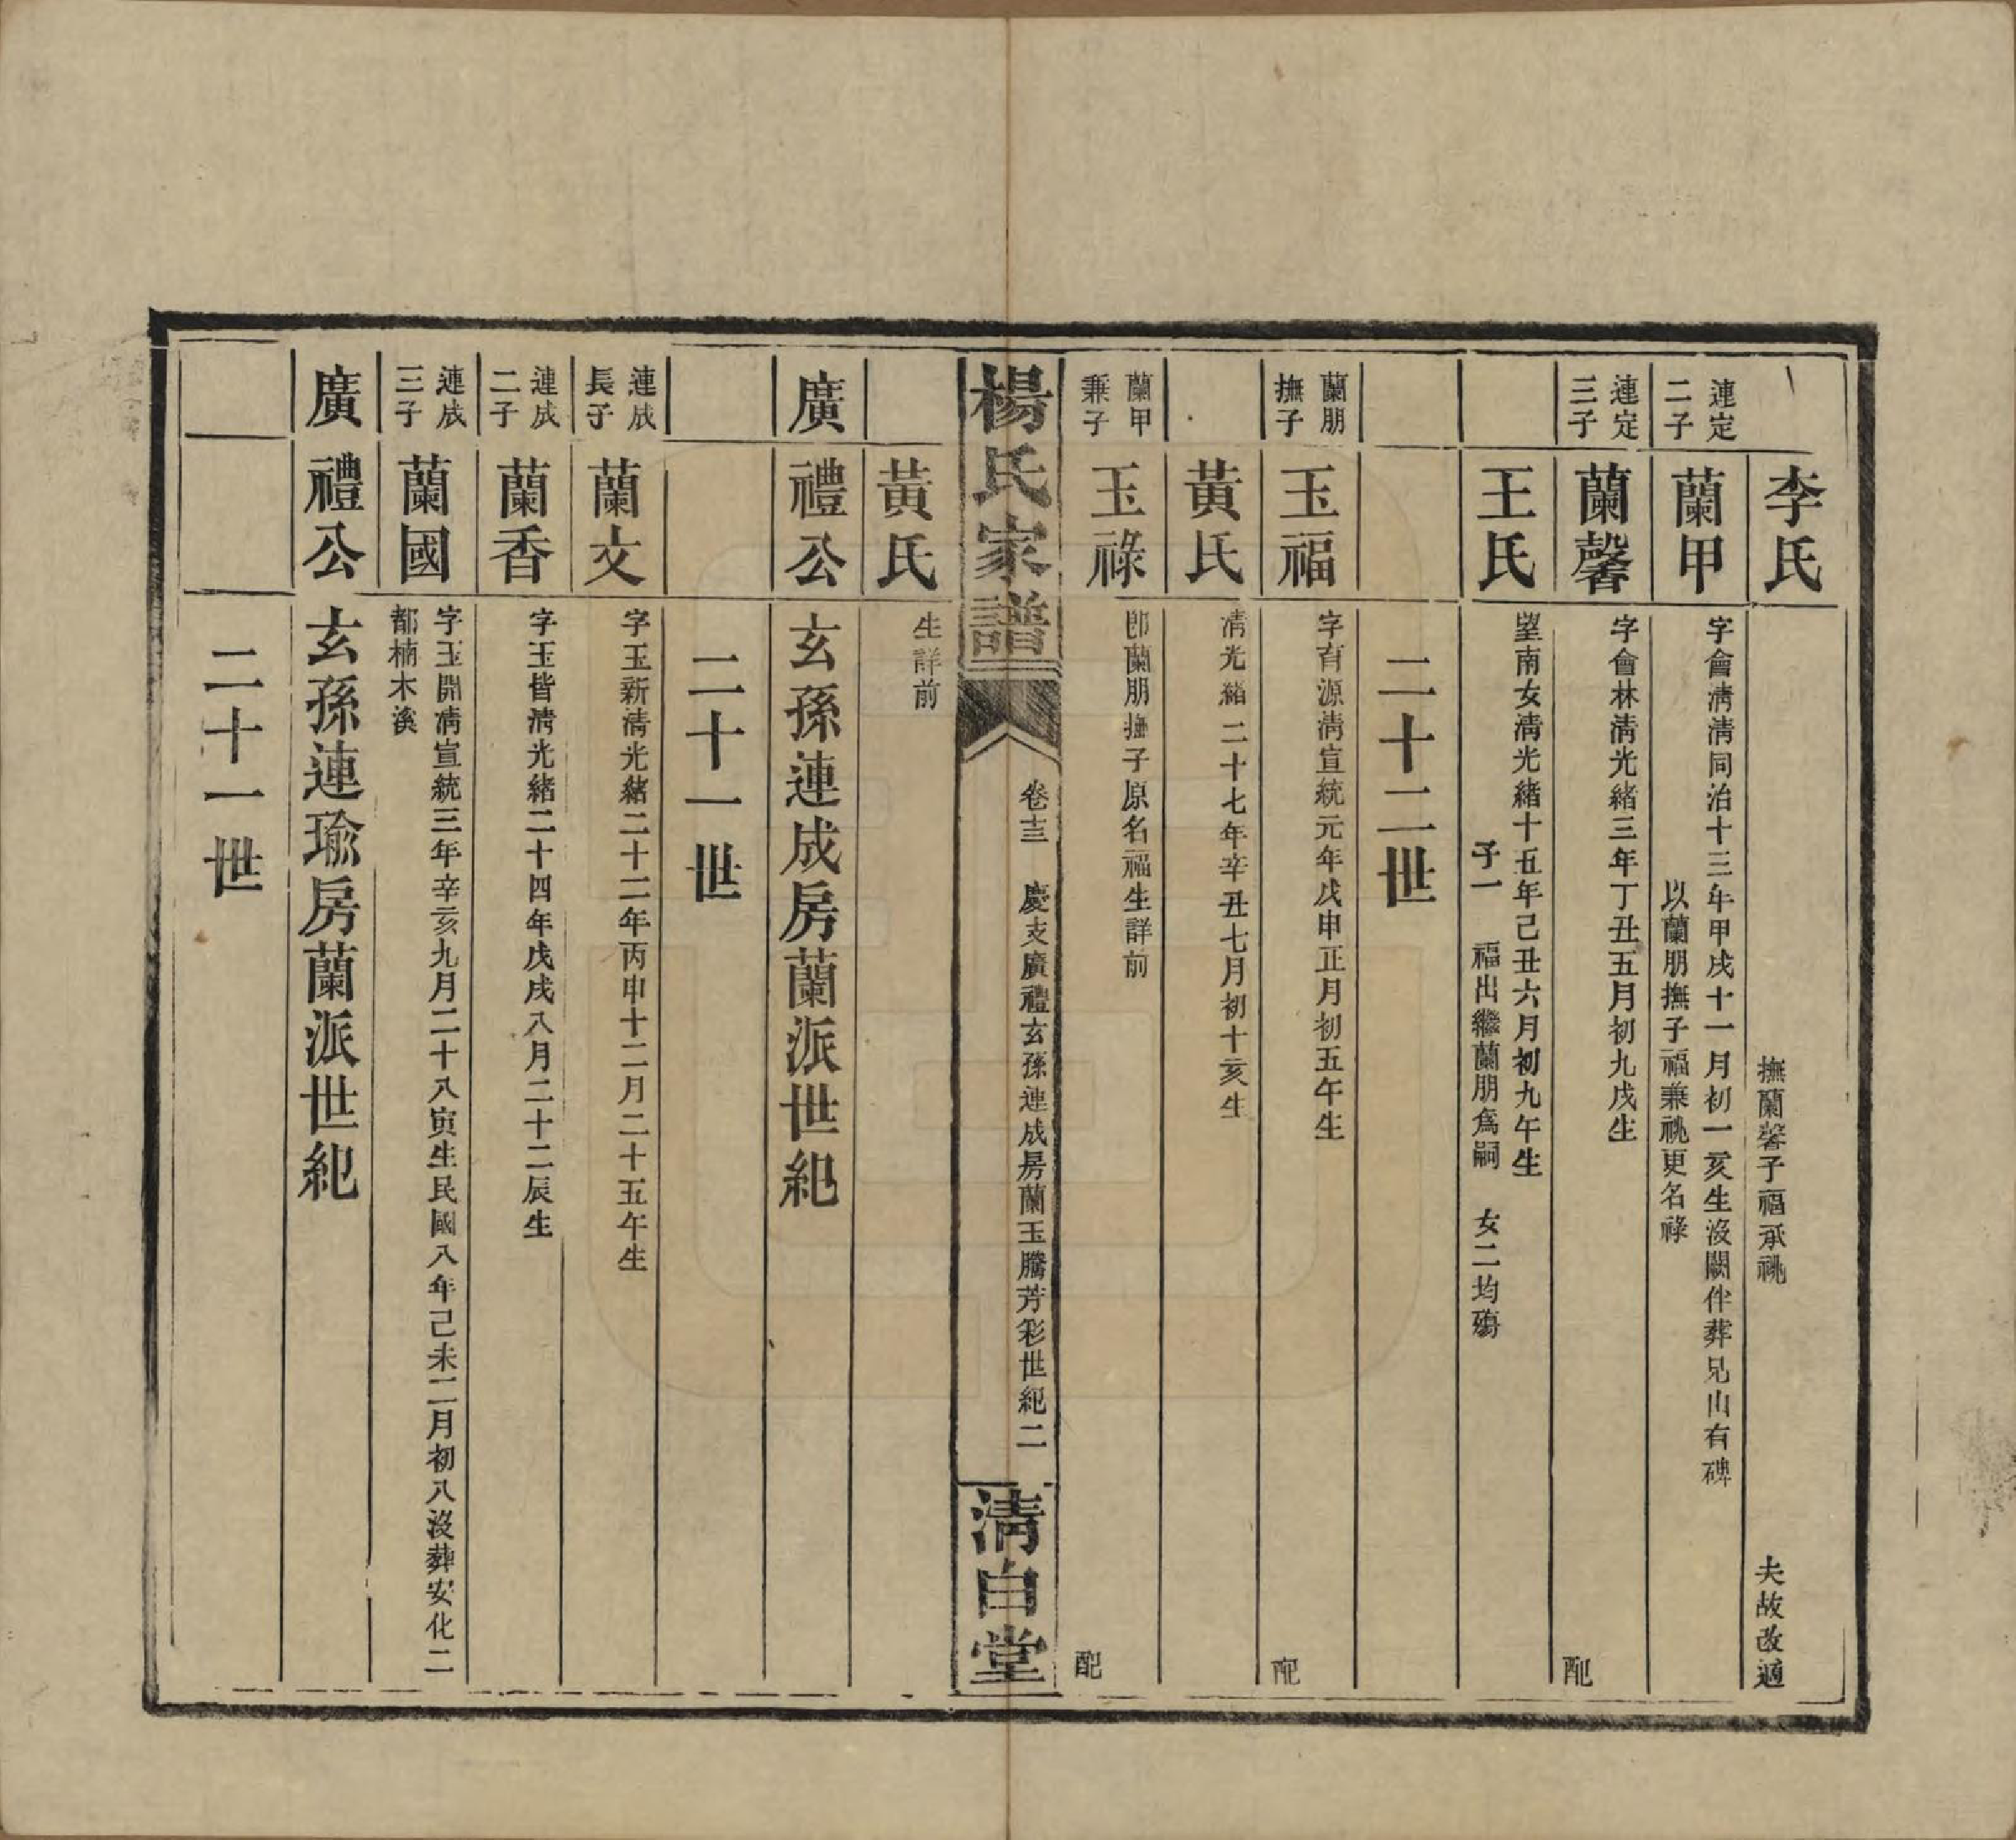 李氏
撫蘭馨子福承祧
夫故改適
連定
二子
蘭甲
字會清清同治十三年甲戌十一月初一亥生沒闕伴葬兄山有碑
以蘭朋撫子福兼祧更名祿
連定
三子
蘭馨
字會林清光緒三年丁丑五月初九戌生
配
王氏
望南女清光緒十五年己丑六月初九午生
子一　福出繼蘭朋為嗣　女二均殤
二十二世
蘭朋
撫子
玉福
字育源清宣統元年戊申正月初五午生
配
黃氏
清光緒二十七年辛丑七月初十亥生
蘭甲
兼子
玉祿
即蘭朋撫子原名福生詳前
配
楊氏家譜
卷十三　慶支廣禮玄孫連成房蘭玉騰芳彩世紀二
清白堂
黃氏
生詳前
廣禮公玄孫連成房蘭派世紀
二十一世
連成
長子
蘭文
字玉新清光緒二十二年丙申十二月二十五午生
連成
二子
蘭香
字玉皆清光緒二十四年戊戌八月二十二辰生
連成
三子
蘭國
字玉開清宣統三年辛亥九月二十八寅生民國八年己未二月初八沒葬安化二
都楠木溪
廣禮公玄孫連瑜房蘭派世紀
二十一世